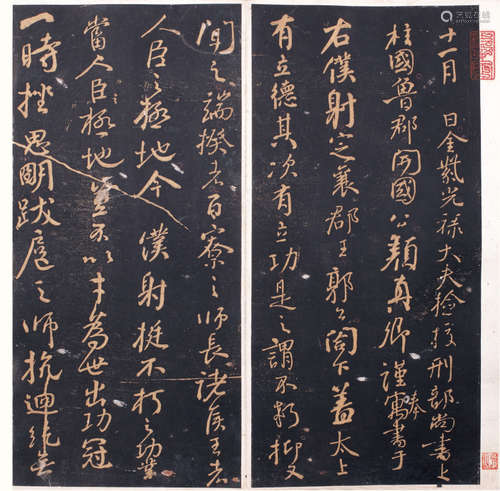 十一月 日金紫光禄大夫檢校刑部尚書上
柱國魯郡開國公顏真卿謹奉寓書于
右僕射定襄郡王郭公閤下蓋太上
有立德其次有立功是之謂不朽抑又
聞之端揆者百寮之師長諸侯王者
人臣之極地今僕射挺不朽之功業
當人臣極地豈不以才為世出功冠
一時挫思明跋扈之師抗迴紇無